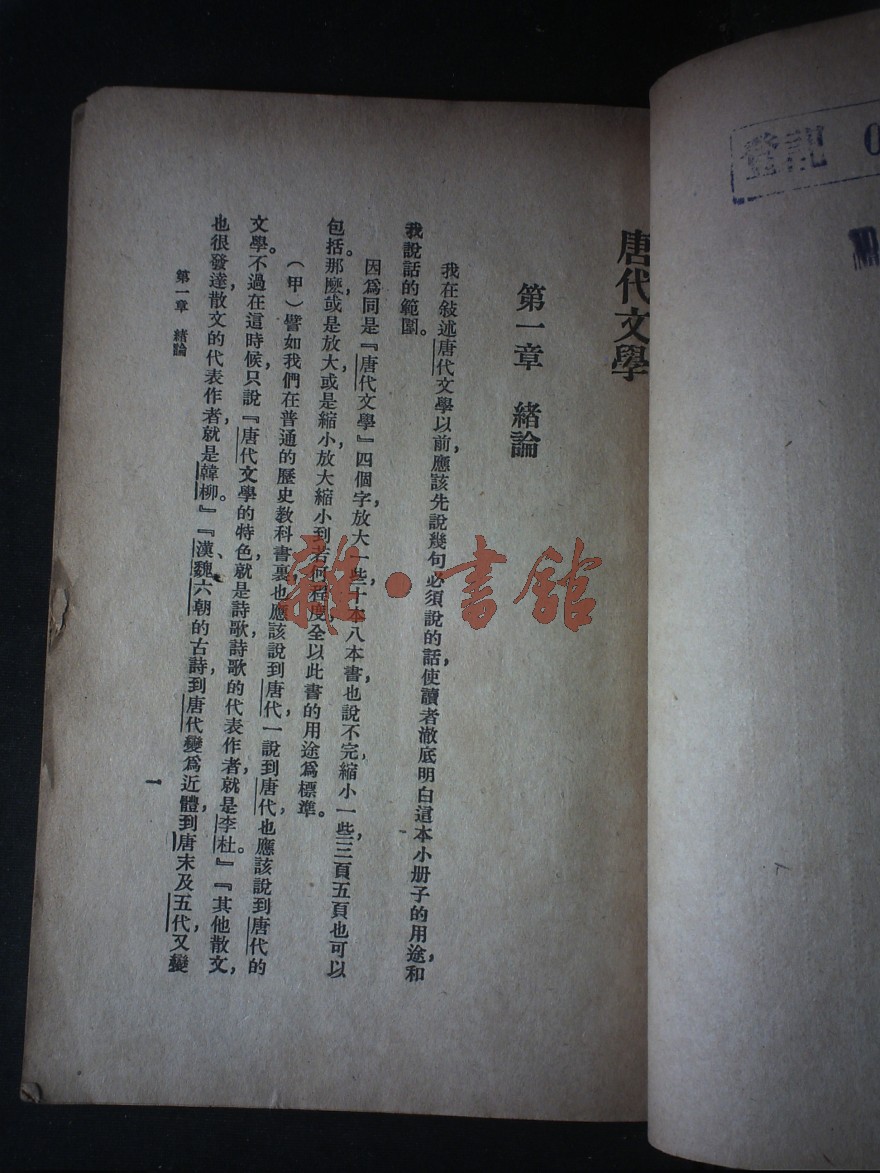 唐代文學
第一章 緒論
我在敍述唐代文學以前，應該先說幾句必須說的話，使讀者澈底明白這本小册子的用途，和
我說話的範圍。
因爲同是『唐代文學』四個字，放大一些，十本八本書也說不完，縮小一些，三頁五頁也可以
包括。那麼，或是放大，或是縮小，放大縮小到若何程度，全以此書的用途爲標準。
（甲）譬如我們在普通的歷史教科書裏，也應該說到唐代，一說到唐代，也應該說到唐代的
文學。不過在這時候，只說『唐代文學的特色，就是詩歌，詩歌的代表作者，就是李杜。』『其他散文，
也很發達，散文的代表作者，就是韓柳。』『漢、魏、六朝的古詩，到唐代變爲近體，到唐末及五代，又變
第一章 緒論
一
登記 0
雜·書館